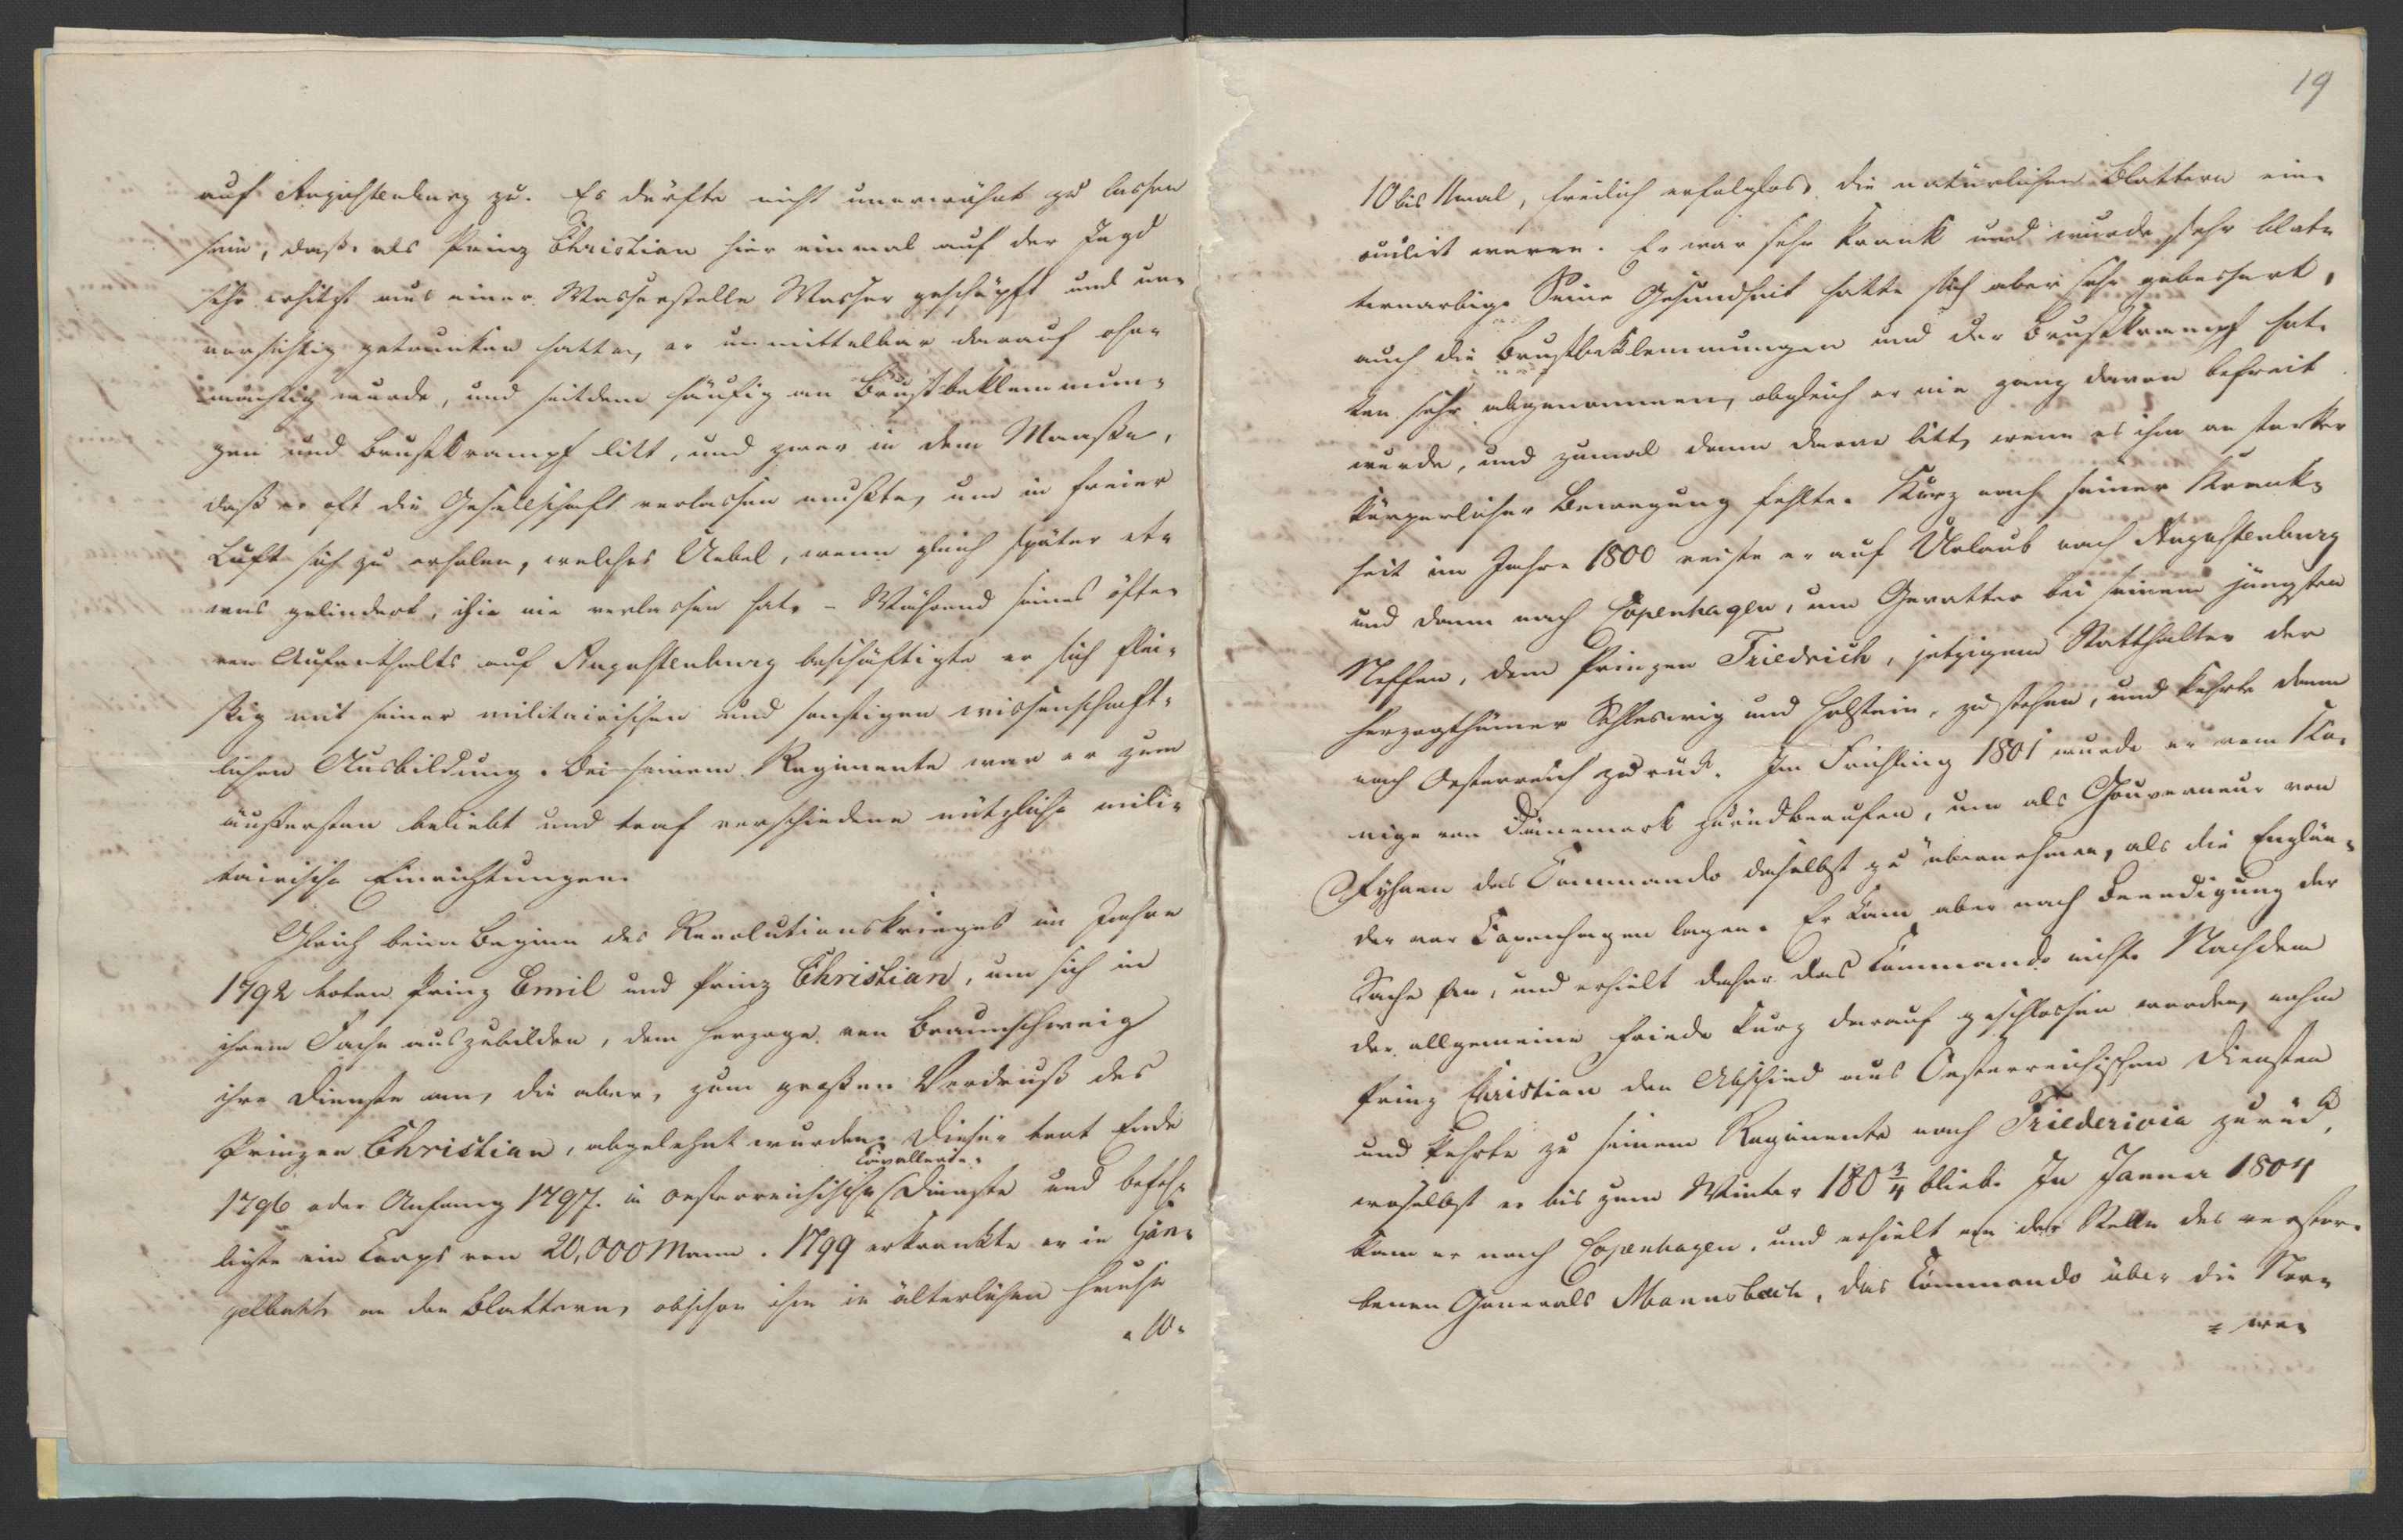 auf Augustenburg zu. Es dürfte nicht unerwähnt zu lassen
sein, daß, als Prinz Christian hier einmal auf der Jagd
sehr erhitzt aus einer Wasserstelle Wasser geschöpft und un-
vorsichtig getrunken hatte, er unmittelbar darauf ohn-
mächtig wurde, und seitdem häufig an Brustbeklemmun-
gen und Brustkrampf litt, und zwar in dem Maaße,
daß er oft die Gesellschaft verlassen mußte, um in freier
Luft sich zu erholen, welches Uebel, wenn gleich später et-
was gelindert, ihn nie verlassen hat. - Während seines öfte-
ren Aufenthalts auf Augustenburg beschäftigte er sich flei-
ßig mit seiner militairischen und sonstigen wissenschaft-
lichen Ausbildung. Bei seinem Regimente war er zum
äußersten beliebt und traf verschiedene nützliche mili-
tairische Einrichtungen.
Gleich beim Beginn des Revolutionskrieges im Jahre
1792 boten Prinz Emil und Prinz Christian, um sich in
ihrem Fache auszubilden, dem Herzoge von Braunschweig
ihre Dienste an, die aber, zum großen Verdruß des
Prinzen Christian, abgelehnt wurden. Dieser trat Ende
Cavallerie-
1796 oder Anfang 1797. in oesterreichische Dienste und befeh-
ligte ein Corps von 20,000 Mann. 1799 erkrankte er in
an den Blattern, obschon ihm in älterlichen Hause
- 10 -
19
10 bis 11mal, freilich erfolglos, die natürlichen Blattern ein-
oculirt waren. Er war sehr krank und wurde sehr blat-
ternarbig. Seine Gesundheit hatte sich aber sehr gebessert,
auch die Brustbeklemmungen und der Brustkrampf hat-
ten sehr abgenommen, obgleich er nie ganz davon befreit
wurde, und zumal dann daran litt, wenn es ihm an starker
körperlicher Bewegung fehlte. Kurz nach seiner Krank-
heit im Jahre 1800 reiste er auf Urlaub nach Augustenburg
und dann nach Copenhagen, um Gevatter bei seinem jüngsten
Neffen, dem Prinzen Friedrich, jetzigem Statthalter der
Herzogthümer Schleswig und Holstein, zu stehen, und kehrte dann
nach Oesterreich zurück. Im Frühling 1801 wurde er vom Kö-
nige von Dänemark zurückberufen, um als Gouverneur von
Fyhnen das Commando daselbst zu übernehmen, als die Englän-
der vor Copenhagen lagen. Er kam aber nach Beendigung der
Sache an, und erhielt daher das Commando nicht. Nachdem
der allgemeine Friede kurz darauf geschlossen worden, nahm
Prinz Christian den Abschied aus Oesterreichischen Diensten
und kehrte zu seinem Regimente nach Friedericia zurück,
woselbst er bis zum Winter 180¾ blieb. Im Januar 1804
kam er nach Copenhagen, und erhielt an der Stelle des verstor-
benen Generals Mannsbach, das Commando über die Nor-
= we-